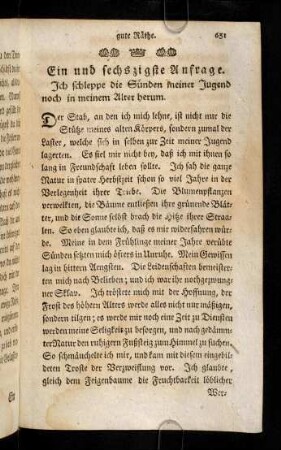 gute Räthe. 651
Ein und sechszigste Anfrage.
Ich schleppe die Sünden meiner Jugend
noch in meinem Alter herum.
Der Stab, an den ich mich lehne, ist nicht nur die
Stütze meines alten Körpers, sondern zumal der
Laster, welche sich in selben zur Zeit meiner Jugend
lagerten. Es fiel mir nicht bey, daß ich mit ihnen so
lang in Freundschaft leben solle. Ich sah die ganze
Natur in später Herbstzeit schon so viel Jahre in der
Verlegenheit ihrer Triebe. Die Blumenpflanzen
verwelkten, die Bäume entließen ihre grünende Blät-
ter, und die Sonne selbst brach die Hitze ihrer Straa-
len. So eben glaubte ich, daß es mir widerfahren wür-
de. Meine in dem Frühlinge meiner Jahre verübte
Sünden setzten mich öfters in Unruhe. Mein Gewissen
lag in bittern Aengsten. Die Leidenschaften bemeister-
ten mich nach Belieben; und ich war ihr nothgezwung-
ner Sklav. Ich tröstete mich mit der Hoffnung, der
Frost des höhern Alters werde alles nicht nur mäßigen,
sondern tilgen; es werde mir noch eine Zeit zu Diensten
werden meine Seligkeit zu besorgen, und nach gedämm-
ter Natur den ruhigern Fußsteig zum Himmel zu suchen.
So schmäuchelte ich mir, und kam mit diesem eingebil-
deten Troste der Verzweiflung vor. Ich glaubte,
gleich dem Feigenbaume die Fruchtbarkeit löblicher
Wer-